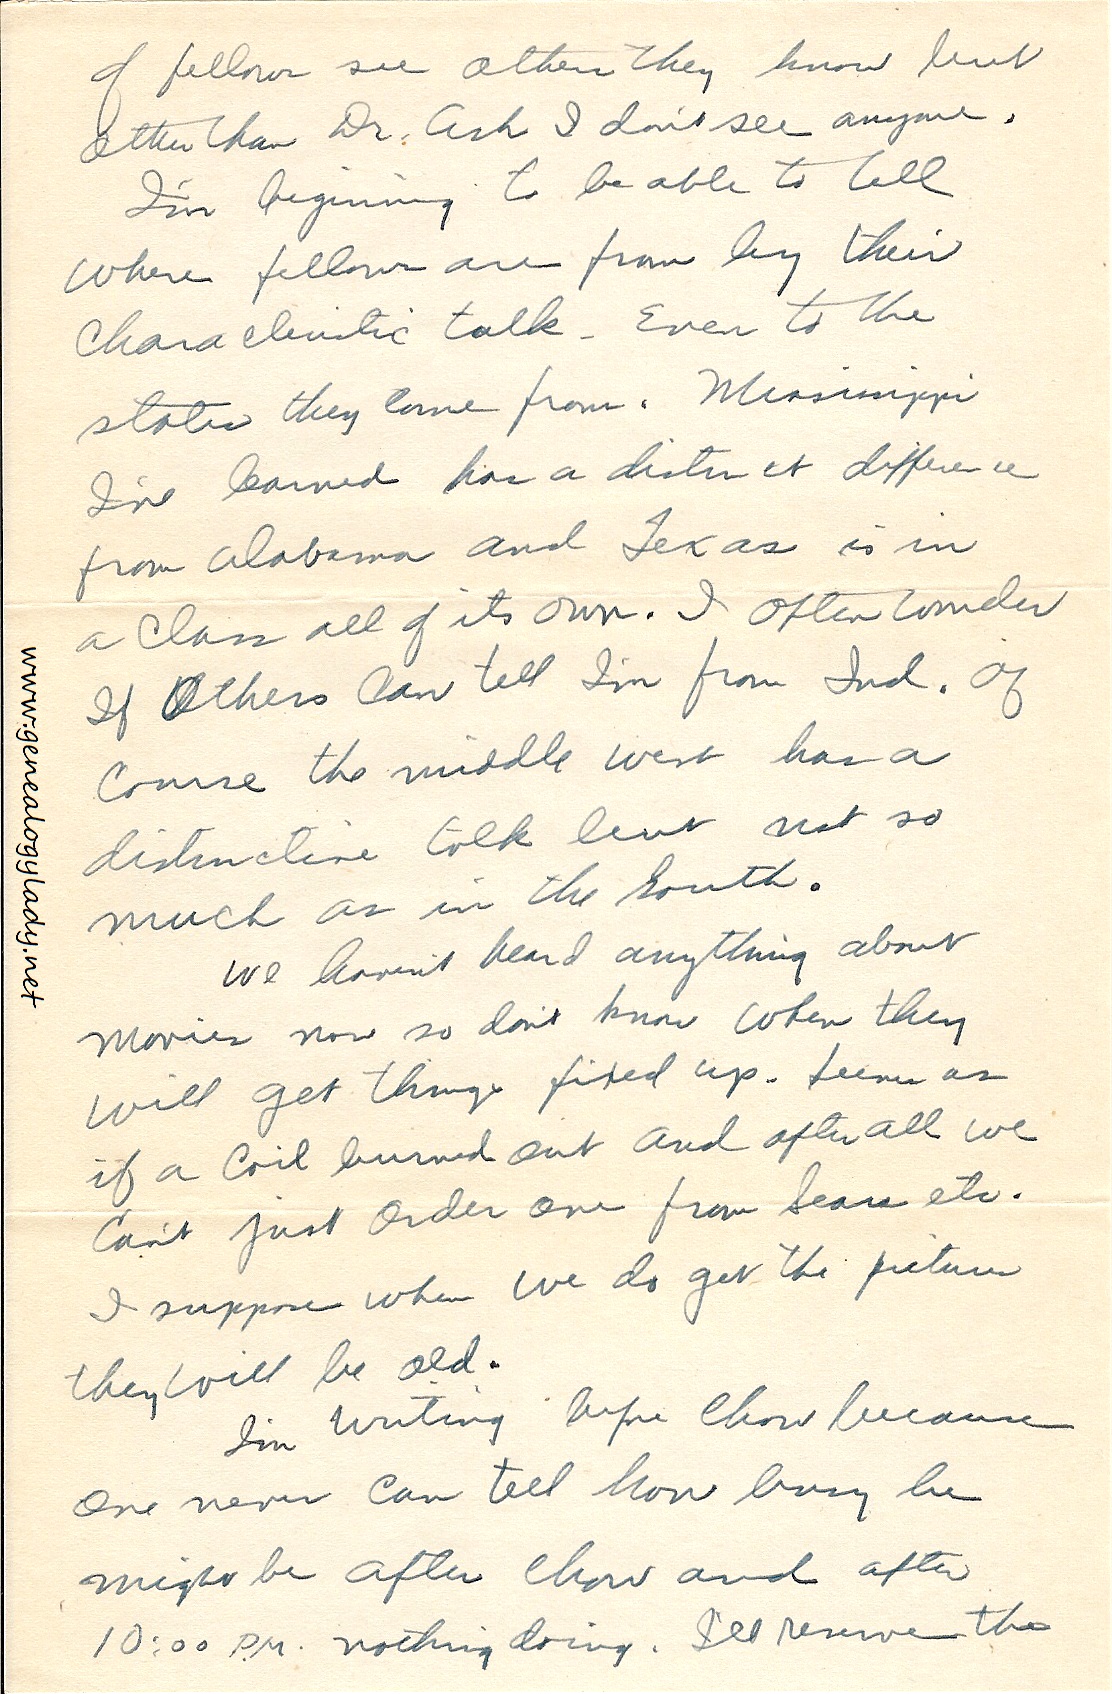 of fellows see others they know but
other than Dr. Ash I don't see anyone.
I'm begining to be able to tell
where fellows are from by their
characteristic talk - Even to the
states they come from. Mississippi
I've learned has a distinct difference
from Alabama and Texas is in
a class all of its own. I often wonder
If Others can tell I'm from Ind. Of
Course the middle west has a
distinctive talk but not so
much as in the South.
We haven't heard anything about
movies now so don't know when they
will get things fixed up. Seems as
if a coil burned out and after all we
can't just order one from Sears etc.
I suppose when we do get the picture
they will be old.
I'm writing before chow because
one never can tell how busy he
might be after chow and after
10:00 P.M. nothing doing. I'll reserve the
www.genealogylady.net